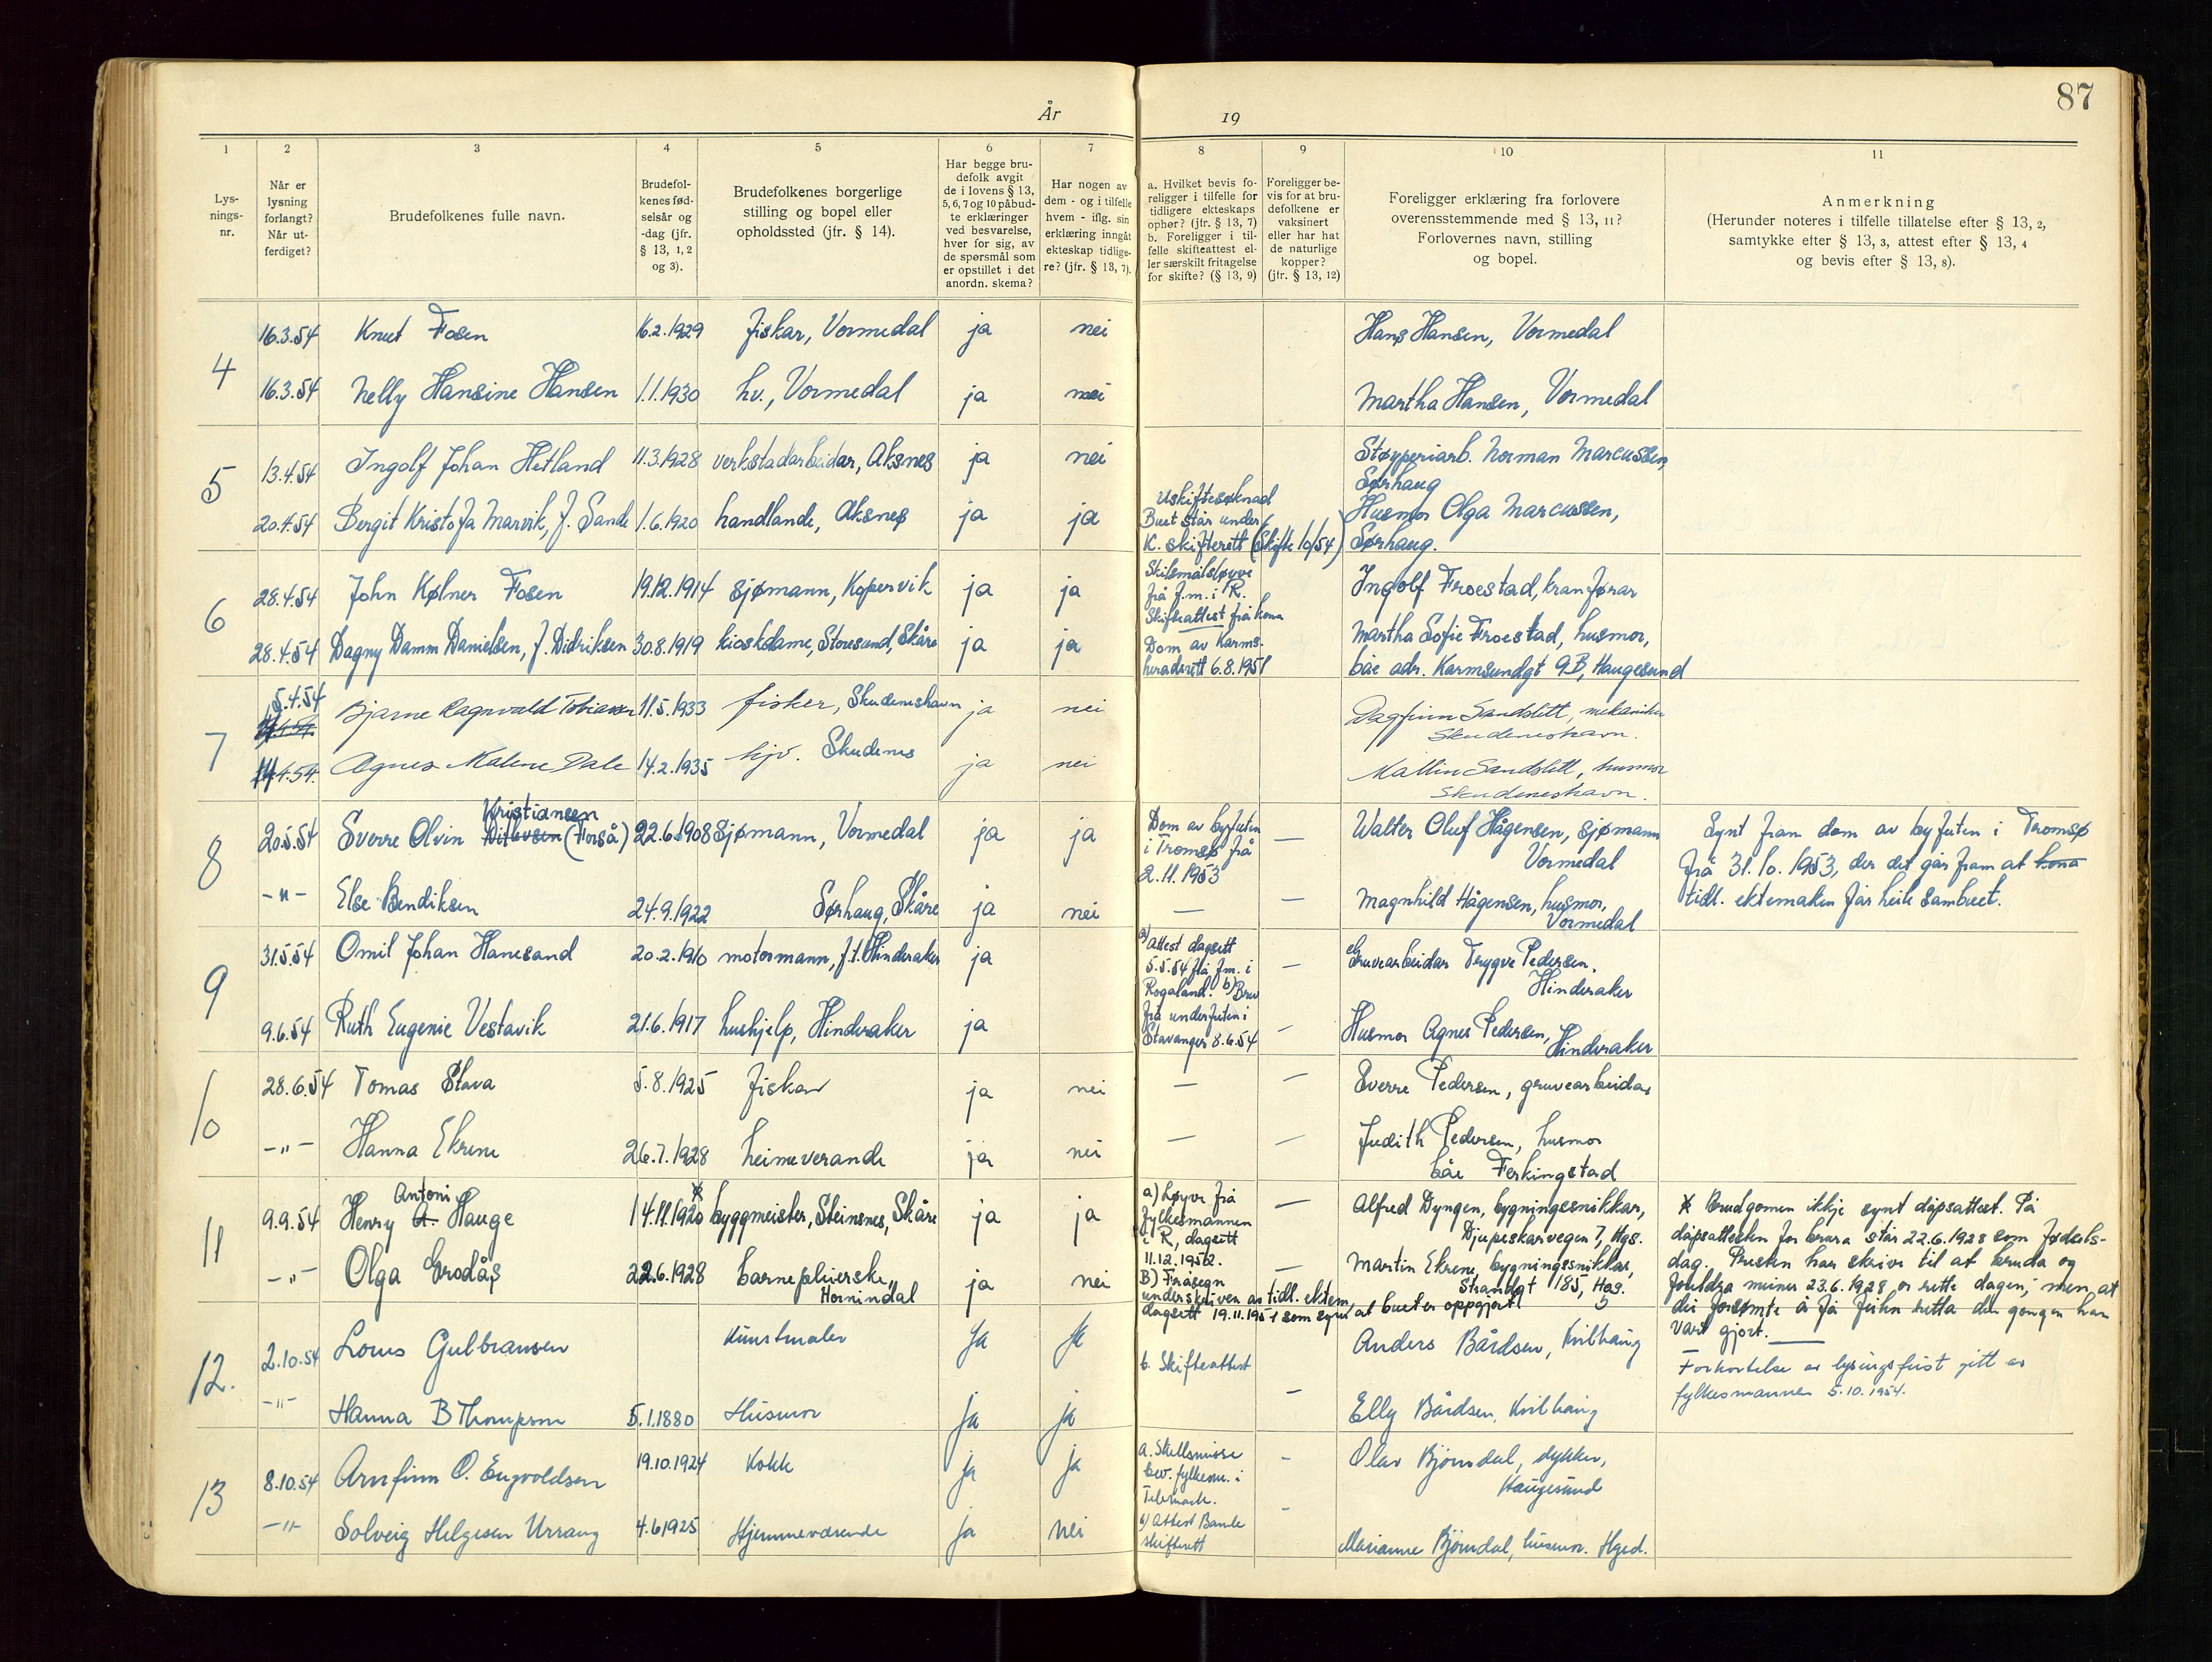 87
År 19
1 2 3 4 5 6 7 8 9 10 11
Lys-
nings-
nr.
Når er
lysning
forlangt?
Når ut-
ferdiget?
Brudefolkenes fulle navn.
Brudefol-
kenes fød-
selsår og
-dag (jfr.
§ 13, 1, 2
og 3).
Brudefolkenes borgerlige
stilling og bopel eller
opholdssted (jfr. § 14).
Har begge bru-
defolk avgit
de i lovens § 13,
5, 6, 7 og 10 påbud-
te erklæringer
ved besvarelse,
hver for sig, av
de spørsmål som
er opstillet i det
anordn. skema?
Har nogen av
dem - og i tilfelle
hvem - iflg. sin
erklæring inngåt
ekteskap tidlige-
re? (jfr. § 13, 7).
a. Hvilket bevis fo-
religger i tilfelle for
tidligere ekteskaps
ophør? (jfr. § 13, 7)
b. Foreligger i til-
felle skifteattest el-
ler særskilt fritagelse
for skifte? (§ 13, 9)
Foreligger be-
vis for at bru-
defolkene er
vaksinert
eller har hat
de naturlige
kopper?
(jfr. § 13, 12)
Foreligger erklæring fra forlovere
overensstemmende med § 13, 11?
Forlovernes navn, stilling
og bopel.
Anmerkning
(Herunder noteres i tilfelle tillatelse efter § 13, 2,
samtykke efter § 13, 3, attest efter § 13, 4
og bevis efter § 13, 8).
4
16.3.54 Knut Fosen 16.2.1929 fiskar, Vormedal ja nei Hans Hansen, Vormedal
16.3.54 Nelly Hansine Hansen 1.1.1930 hv., Vormedal ja nei Martha Hansen, Vormedal
5
13.4.54 Ingolf Johan Hetland 11.3.1928 verkstadarbeidar, Aksnes ja nei Støyperiarb. Norman Marcussen,
Sørhaug
20.4.54 Bergit Kristofa Marvik, f. Sande 1.6.1920 handlande, Aksnes ja ja
Uskiftesøknad
Buet står under
K. skifterett (Skifte 10/54)
Husmor Olga Marcussen,
Sørhaug.
6
28.4.54 John Kølner Fosen 19.12.1914 sjømann, Kopervik ja ja
Skilsmålsløyve
frå f.m. i R.
Skifteattest frå kona
Ingolf Froestad, kranførar
28.4.54 Dagny Damm Danielsen, f. Didriksen 30.8.1919 kioskdame, Storesund, Skåre ja ja
Dom av Karms.
heradsrett 6.8.1951
Martha Sofie Froestad, husmor,
båe adr. Karmsundgt 9B, Haugesund
7
5.4.54 Bjarne Ragnvald Tobiassen 11.5.1933 fisker, Skudeneshavn ja nei Dagfinn Sandslett, mekaniker
Skudeneshavn.
4.54. Agnes Malene Dale 14.2.1935 hjv. Skudenes ja nei Mallin Sandslett, husmor
Skudeneshavn.
8
20.5.54 Sverre Olvin Kristiansen (Forså) 22.6.1908 sjømann, Vormedal ja ja
Dom av byfuten
i Tromsø frå
2.11.1953
— Walter Oluf Hågensen, sjømann
Vormedal
Synt fram dom av byfuten i Tromsø
frå 31.10.1953, der det går fram at kona
tidl. ektemaken får heile sambuet.
-"- Else Bendiksen 24.9.1922 Sørhaug, Skåre ja nei — — Magnhild Hågensen, husmor,
Vormedal
9
31.5.54 Omil Johan Hanesand 20.2.1910 motormann, f.t. Hinderaker ja
a) Attest dagsett
5.5.54 frå fm. i
Rogaland. b) Brev
frå underfuten i
Stavanger 8.6.54
— Gruvearbeidar Trygve Pedersen.
Hinderaker
9.6.54 Ruth Eugenie Vestavik 21.6.1917 hushjelp, Hinderaker ja — Husmor Agnes Pedersen,
Hinderaker
10
28.6.54 Tomas Stava 5.8.1925 fiskar ja nei — — Sverre Pedersen, gruvearbeidar
-"- Hanna Ekrene 26.7.1928 heimeverande ja nei — — Judith Pedersen, husmor
båe Ferkingstad
11
9.9.54 Henry Antoni A. Hauge 14.11.1920 x byggmeister, Steinsnes, Skåre ja ja
a) Løyve frå
fylkesmannen
i R, dagsett
11.12.1952.
— Alfred Dyngen, bygningssnikkar,
Djupaskarvegen 7, Hgs.
x Brudgomen ikkje synt dåpsattest. På
dåpsattesten for brura står 22.6.1928 som fødsels-
dag. Presten har skrive til at bruda og
foreldra meiner 23.6.1928 er rette dagen, men at
dei forsømte å få feilen retta den gongen han
vart gjort. —
-"- Olga Grodås 22.6.1928 barnepleierske,
Hornindal ja nei
B) Fråsegn
underskriven av tidl. ektem,
dagsett 19.11.1951 som syner at buet er oppgjort
— Martin Ekrene, bygningssnikkar,
Strandgt 185, Hag.
12.
2.10.54 Louis Gulbransen Kunstmaler Ja Ja
b. Skifteattest
Anders Bårdsen, Kvilhaug
Forkortelse av lysingsfrist gitt av
fylkesmannen 5.10.1954.
-"- Hanna B Thompson 5.1.1880 Husmor ja ja — Elly Bårdsen, Kvilhaug
13
8.10.54 Arnfinn O. Engvoldsen 19.10.1924 Kokk ja ja
a. Skilsmisse
bev. fylkesm. i
Telemark.
b) Attest Bamle
skifterett
- Olav Bjørndal, dykker,
Haugesund
-"- Solveig Helgesen Urrang 4.6.1925 Hjemmeværende ja nei - Marianne Bjørndal, husmor. Hgsd.